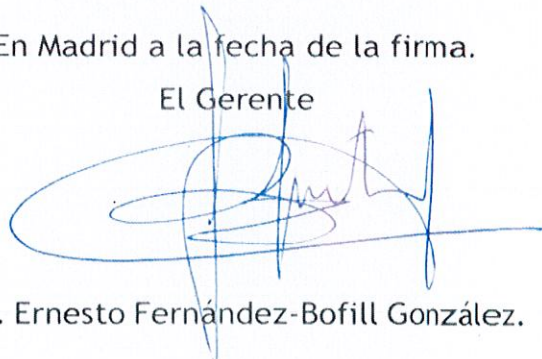 En Madrid a la fecha de la firma.
El Gerente
. Ernesto Fernández-Bofill González.